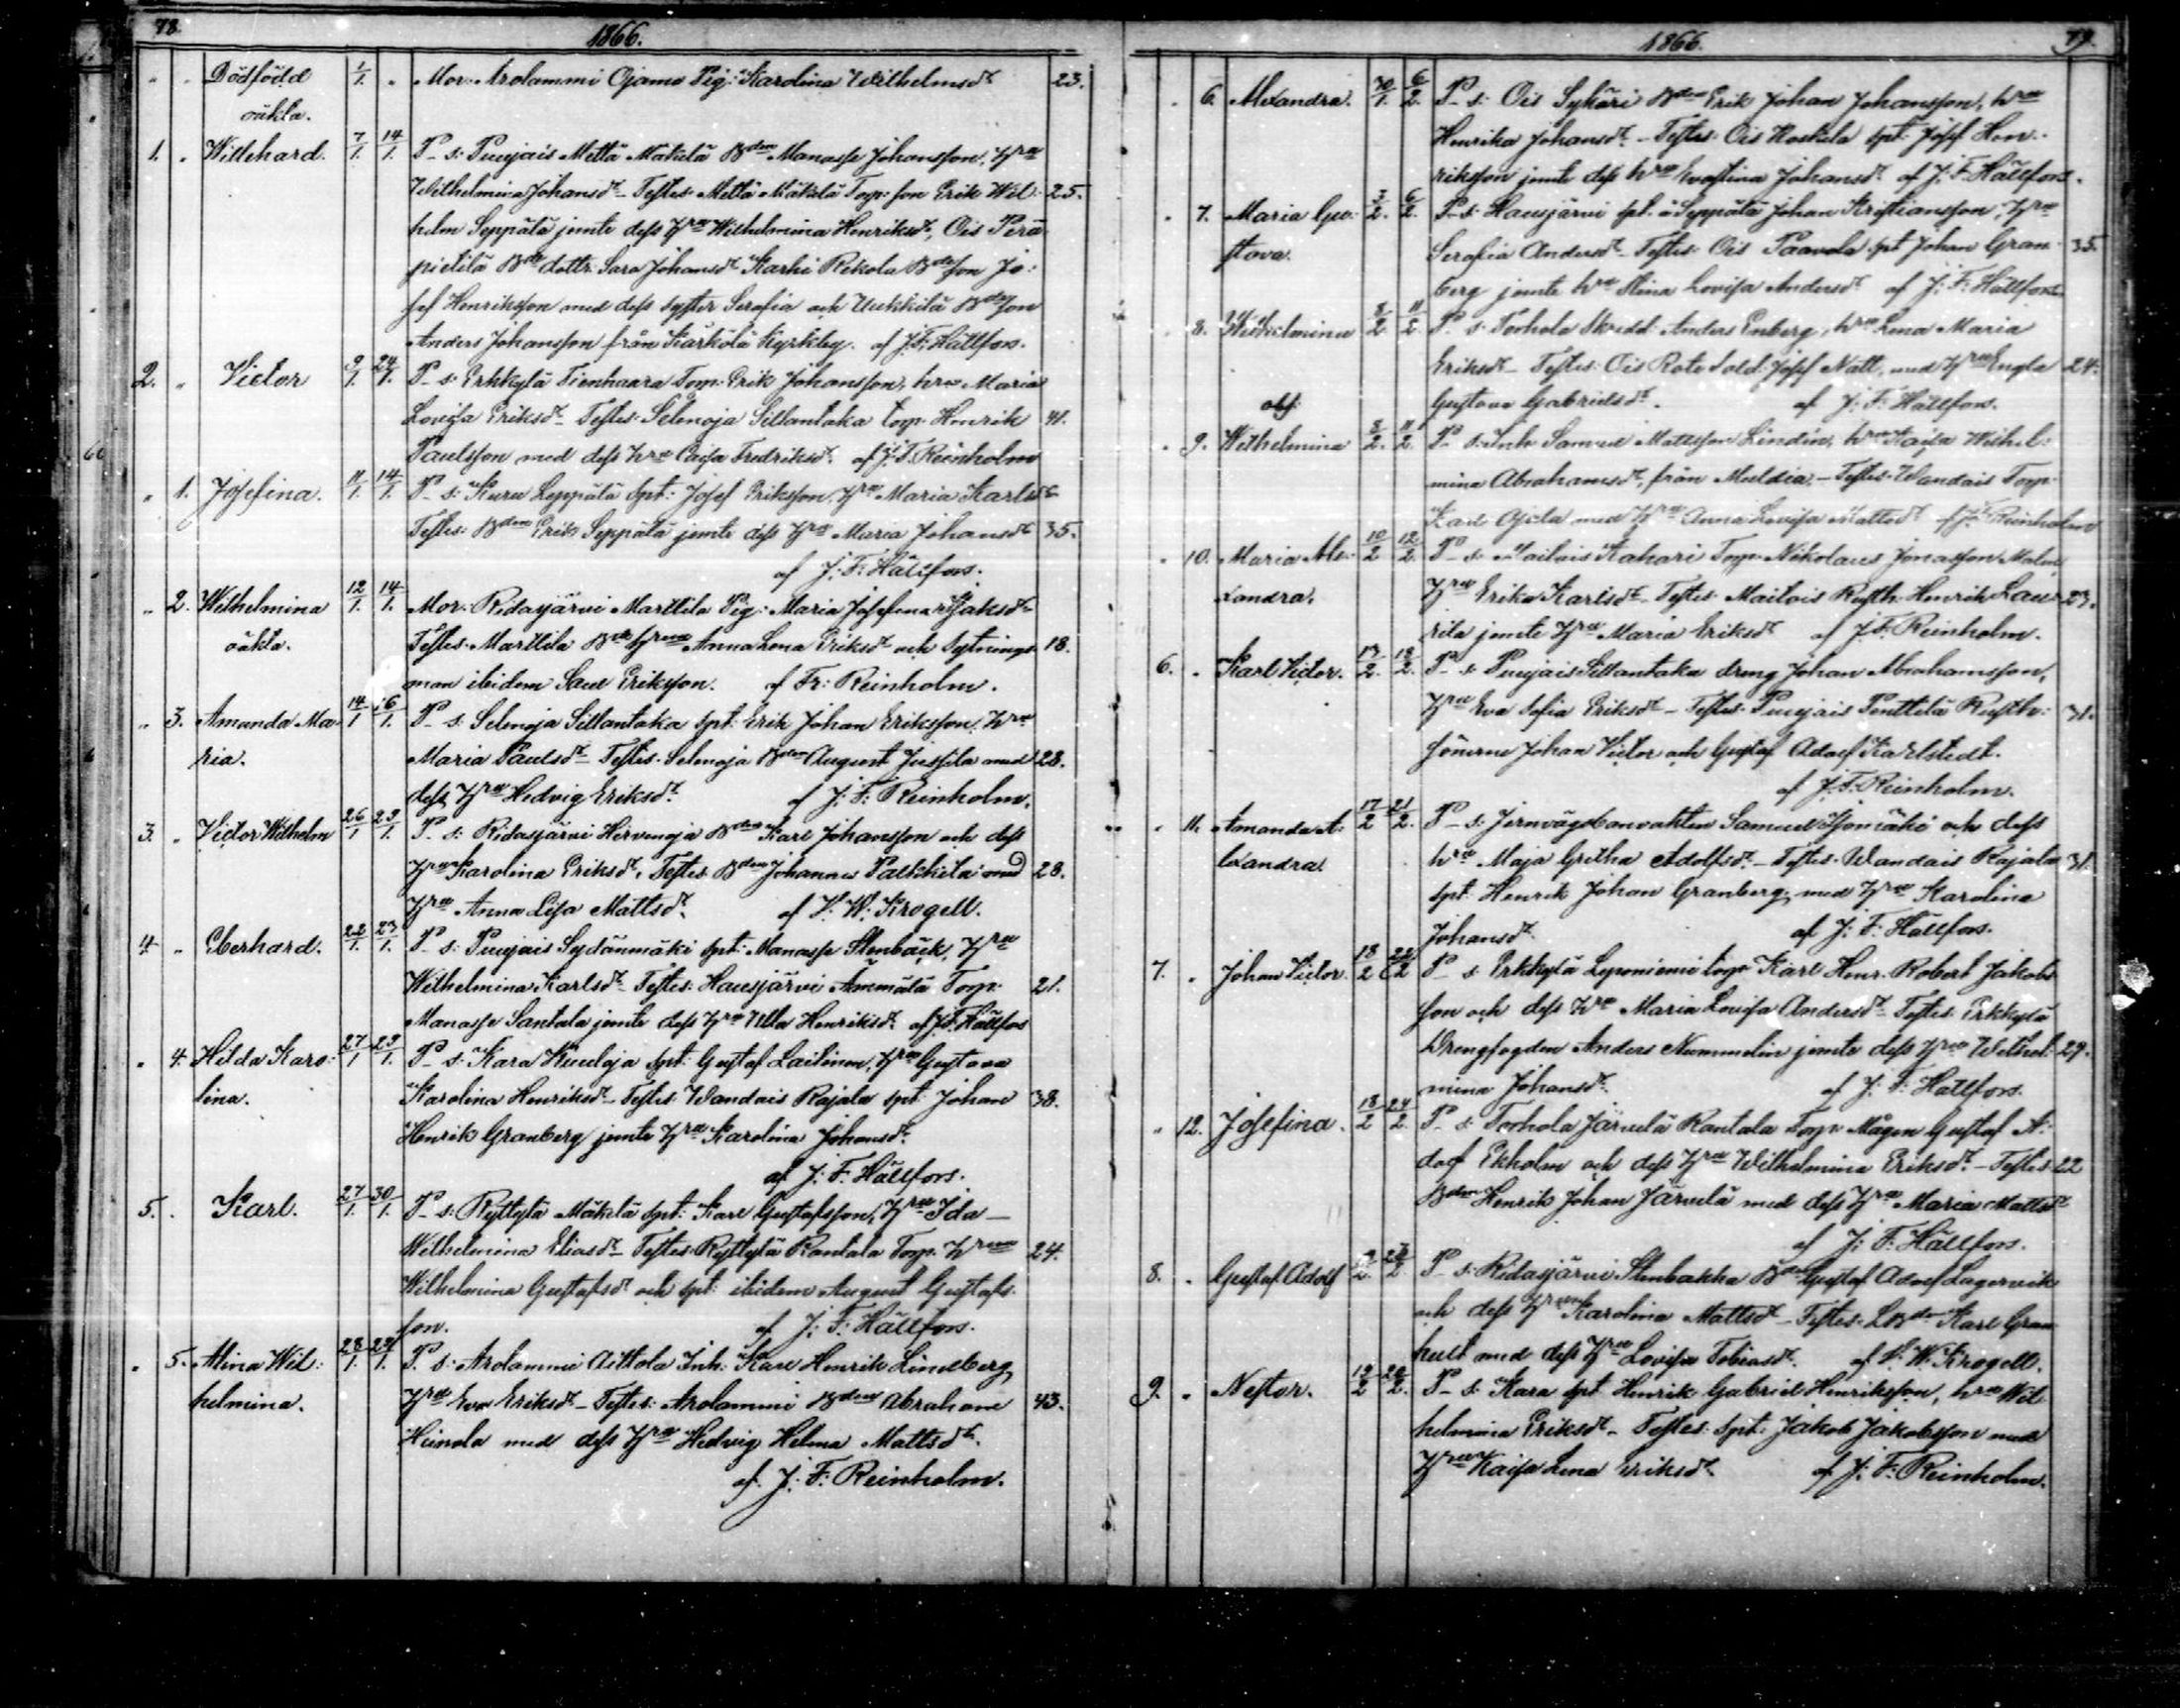 78. 1866.
" " Dödfödd 1/1. " Mor: Arolammi Ojamo Pig: Karolina Wilhelmsdr 23.
oäkta.
1. " Willehard. 7/1. 14/1. P. s: Puujais Mellä Mäkelä Bden Manasse Johansson, Hru
Wilhelmina Johansdr - Testes: Mellä Mäkelä Torp: son Erik Wil: 25.
helm Seppälä jemte dess Hru Wilhelmina Henriksdr, Ois Perä
pietilä Bde dottr: Sara Johansdr Karhi Rekola Bdeson Jo:
sef Henriksson med dess syster Serafia och Uukkilä Bdeson
Anders Johansson från Kärkölä Kyrkby. af J: F: Hällfors.
2. " Victor 9/1. 24/1. P. s: Erkkylä Tienhaara Torp: Erik Johansson, hru Maria
Lovisa Eriksdr - Testes: Selenoja Sillantaka torp: Henrik 41.
Paulsson med dess hru Caisa Fredriksdr. af J: F: Reinholm
" 1. Josefina. 11/1. 14/1. P. s: Kuru Leppälä Spt: Josef Eriksson, Hru Maria Karlsdr
Testes: Bden Erik Seppälä jemte dess Hru Maria Johansdr 35.
af J: F: Hällfors.
" 2. Wilhelmina 12/1. 14/1. Mor: Ridasjärvi Marttila Pig: Maria Josefina Isaksdr
oäkta. Testes: Marttila Bde Hrun Anna Lena Eriksdr och Sytnings- 18.
man ibidem Saul Eriksson. af Fr: Reinholm.
" 3. Amanda Ma- 14/1 16/1. P. s: Selenoja Sillantaka Spt: Erik Johan Eriksson, Hru
ria. Maria Paulsdr - Testes: Selenoja Bden August Jussila med 28.
dess Hru Hedvig Eriksdr. af J: F: Reinholm.
3. " Victor Wilhelm 26/1 29/1. P. s: Ridasjärvi Hirvenoja Bden Karl Johansson och dess
Hru Karolina Eriksdr, Testes: Bden Johannes Palkkila med 28.
Hru Anna Lisa Mattsdr. af V: W: Krogell.
4 " Eberhard. 22/1. 23/1. P. s: Puujais Sydänmäki Spt: Manasse Stenbäck, Hru
Wilhelmina Karlsdr - Testes: Hausjärvi Ämmälä Torp. 21.
Manasse Santala jemte dess Hru Ulla Henriksdr. af J: F: Hällfors
" 4. Hilda Karo- 27/1 29/1. P. s: Kara Kuuloja Spt: Gustaf Lailinen, Hru Gustava
lina. Karolina Henriksdr - Testes: Wandais Rajala Spt: Johan 38.
Henrik Granberg jemte Hru Karolina Johansdr.
af J: F: Hällfors.
5. " Karl. 27/1. 30/1. P. s: Ryttylä Mäkelä Spt: Karl Gustafsson, Hru Ida
Wilhelmina Eliasdr - Testes: Ryttylä Rantala Torp: Hrun 24.
Wilhelmina Gustafsdr och Spt: ibidem August Gustafs-
son. af J: F: Hällfors.
" 5. Alina Wil: 28/1. 29/1. P. s: Arolammi Aittola Inh: Karl Henrik Lindberg
helmina. Hru Eva Eriksdr - Testes: Arolammi Bden Abraham 43.
Heinola med dess Hru Hedvig Helma Mattsdr.
af J: F: Reinholm.
1866. 79.
" 6. Alexandra. 30/1. 6/2. P. s: Ois Sykäri Bden Erik Johan Johansson, hru
Henrika Johansdr - Testes: Ois Hoskola Spt: Josef Hen-
riksson jemte dess hru Evastina Johansdr. af J: F: Hällfors.
" 7. Maria Gu- 3/2. 6/2. P. s: Hausjärvi Spt. å Seppälä Johan Kristiansson, Hru
stava. Serafia Andersdr - Testes: Ois Paavola Spt Johan Gran- 35.
berg jemte hru Stina Lovisa Andersdr af J: F: Hällfors
" 8. Wilhelmina 8/2. 11/2. P. s: Torhola Skredd. Anders Enberg, hru Lena Maria
Eriksdr - Testes: Ois Rote Sold: Josef Natt, med Hru Engla 24.
Gustava Gabrielsdr. af J: F: Hällfors.
" 9. Wilhelmina 8/2. 11/2. P. s: Inh: Samuel Mattsson Lindin, hru Kaisa Wilhel:
mina Abrahamsdr, från Messldia - Testes: Wandais Torp
Karl Ojala med Hru Anna Lovisa Mattsdr af J: F: Reinholm
" 10. Maria Ale- 10/2 12/2. P. s: Mailais Kahari Torp: Nikolaus Jonasson Malm
xandra. Hru Erika Karlsdr - Testes: Mailois Rusth: Henrik Lau- 23.
rila jemte Hru Maria Eriksdr af J: F: Reinholm.
6. " Karl Victor. 17/2. 18/2. P. s: Puujais Sillantaka dreng Johan Abrahamsson,
Hru Eva Sofia Eriksdr - Testes: Puujais Penttilä Rusth: 31.
sönerne Johan Victor och Gustaf Adolf Karlstedt.
af J: F: Reinholm.
" 11. Amanda A- 17/2 21/2. P. s: Jernvägsbanvakten Samuel Isomäki och dess
lexandra. hru Maja Gretha Adolfsdr - Testes: Wandais Rajala 31.
Spt. Henrik Johan Granberg, med Hru Karolina
Johansdr. af J: F: Hällfors.
7. " Johan Victor. 18/2 22/2 P. s: Erkkylä Leponiemi torp: Karl Henr. Robert Jakobs-
son och dess Hru Maria Lovisa Andersdr - Testes: Erkkylä
Drengfogden Anders Nummelin jemte dess Hru Wilhel- 29.
mina Johansdr. af J: F: Hällfors.
" 12. Josefina. 18/2 24/2. P. s: Torhola Järvelä Rantala Torp: Mågen Gustaf A-
dolf Ekholm och dess Hru Wilhelmina Eriksdr - Testes 22
Bden Henrik Johan Järvelä med dess Hru Maria Mattsdr
af J: F: Hällfors.
8. " Gustaf Adolf P. s: Ridasjärvi Stenbakka Bden Gustaf Adolf Lagervik
och dess Hru Karolina Mattsdr - Testes: LBden Karl Gran
hult med dess Hru Lovisa Tobiasdr. af V: W: Krogell.
9. " Nestor. 19/2 P. s: Kara Spt Henrik Gabriel Henriksson, hru Wil
helmina Eriksdr - Testes: Spt: Jakob Jakobsson med
Hru Kaisa Lena Eriksdr af J: F: Reinholm.